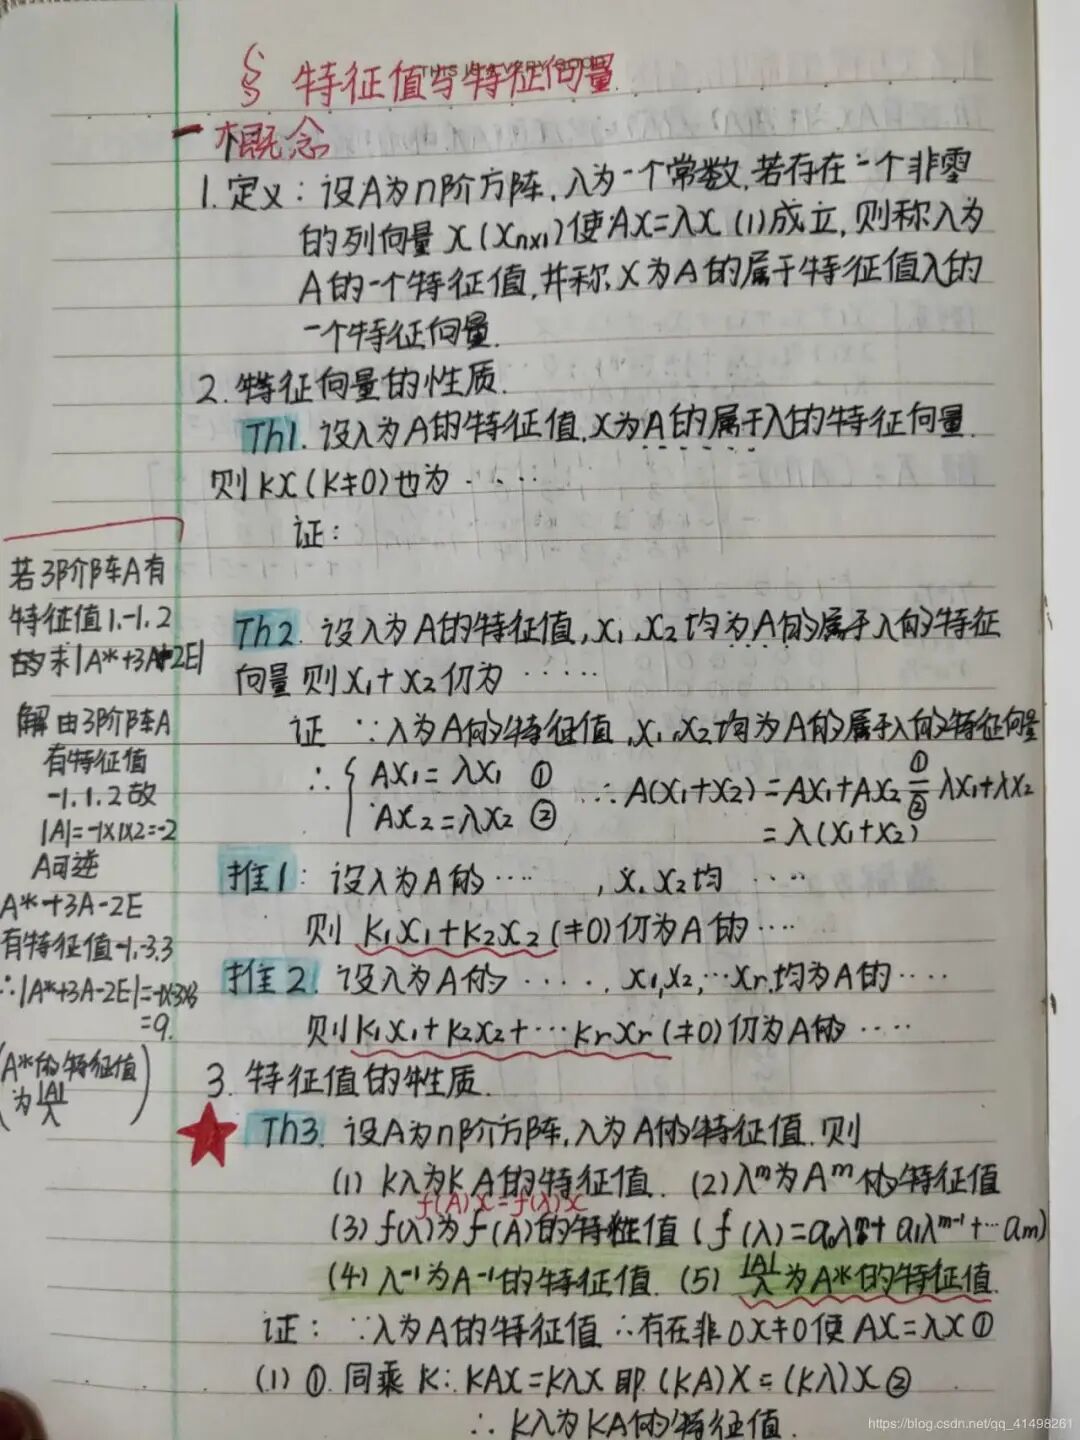 § 特征值与特征向量
一 概念
1. 定义：设A为n阶方阵，λ为一个常数，若存在一个非零
的列向量 X (Xn×1) 使AX=λX (1)成立，则称λ为
A的一个特征值，并称X为A的属于特征值λ的
一个特征向量.
2. 特征向量的性质.
Th1. 设λ为A的特征值，X为A的属于λ的特征向量.
则 kX (k≠0) 也为 ‥‥
证：
Th2. 设λ为A的特征值，X₁,X₂均为A的属于λ的特征
向量 则 X₁+X₂仍为 ‥‥‥
证 ∵λ为A的特征值，X₁,X₂均为A的属于λ的特征向量
∴ { AX₁=λX₁ ① ∴A(X₁+X₂)=AX₁+AX₂ ①=② λX₁+λX₂
AX₂=λX₂ ② =λ(X₁+X₂)
推1：设λ为A的‥‥ ，X. X₂均 ‥‥
则 K₁X₁+K₂X₂ (≠0)仍为A的‥‥
推2. 设λ为A的 ‥‥‥，X₁,X₂,…Xr.均为A的‥‥
则K₁X₁+K₂X₂+…KrXr (≠0)仍为A的‥‥
3. 特征值的性质.
Th3. 设A为n阶方阵，λ为A的特征值.则
(1) kλ为KA的特征值. (2) λᵐ为Aᵐ的特征值
f(A)X=f(λ)X
(3) f(λ)为f(A)的特征值 (f(λ)=a₀λᵐ+a₁λᵐ⁻¹+…aₘ)
(4) λ⁻¹为A⁻¹的特征值. (5) |A|/λ为A*的特征值.
证：∵λ为A的特征值 ∴存在非0X≠0使AX=λX①
(1) ①.同乘K：KAX=KλX 即 (KA)X=(Kλ)X②
∴ Kλ为KA的特征值.
若3阶阵A有
特征值1.-1.2
的求|A*+3A-2E|
解 由3阶阵A
有特征值
-1.1.2故
|A|=-1×1×2=-2
A可逆
A*+3A-2E
有特征值-1,-3.3
∴|A*+3A-2E|=-1×-3×3
=9.
(A*的特征值
为|A|/λ)
https://blog.csdn.net/qq_41498261